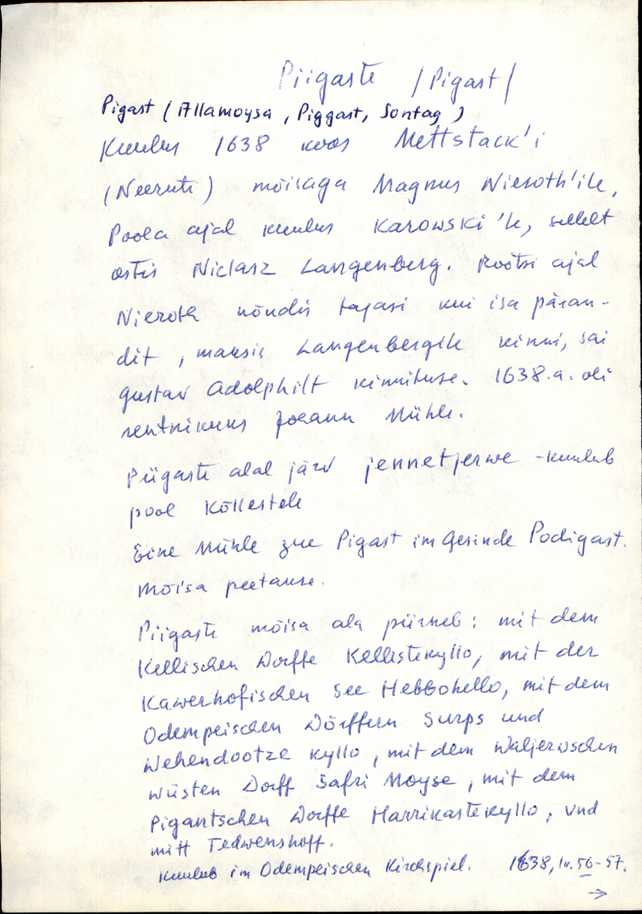 Piigaste /Pigast/
Pigast (Allamoysa, Piggast, Sontag)
Kuulus 1638 koos Mettstack'i
(Neeruti) mõisaga Magnus Nieroth'ile,
Poola ajal kuulus Karowski'le, sellelt
ostis Niclasz Langenberg. Rootsi ajal
Nieroth nõudis tagasi kui isa päran-
dit, maksis Langenbergile kinni, sai
Gustav Adolphilt kinnituse. 1638.a. oli
rentnikuks Johann Mühle.
Piigaste alal järv jennetjerwe - kuulub
pool Kõllestele
Eine Mühle zue Pigast im Gesinde Podigast.
Mõisa peetakse.
Piigaste mõisa ala piirneb: mit dem
Kellischen Dorffe Kellistekyllo, mit der
Kawerhofischen See Hebbohello, mit dem
Odempeischen Dörffern Surps und
Wehendootze kyllo, mit dem Waljerwschen
wüsten Dorff Safri Moyse, mit dem
Pigantschen Dorffe Harrikastekyllo, vnd
mitt Tedwenshoff.
Kuulub im Odempeischen Kirchspiel. 1638, lk. 56-57.
→